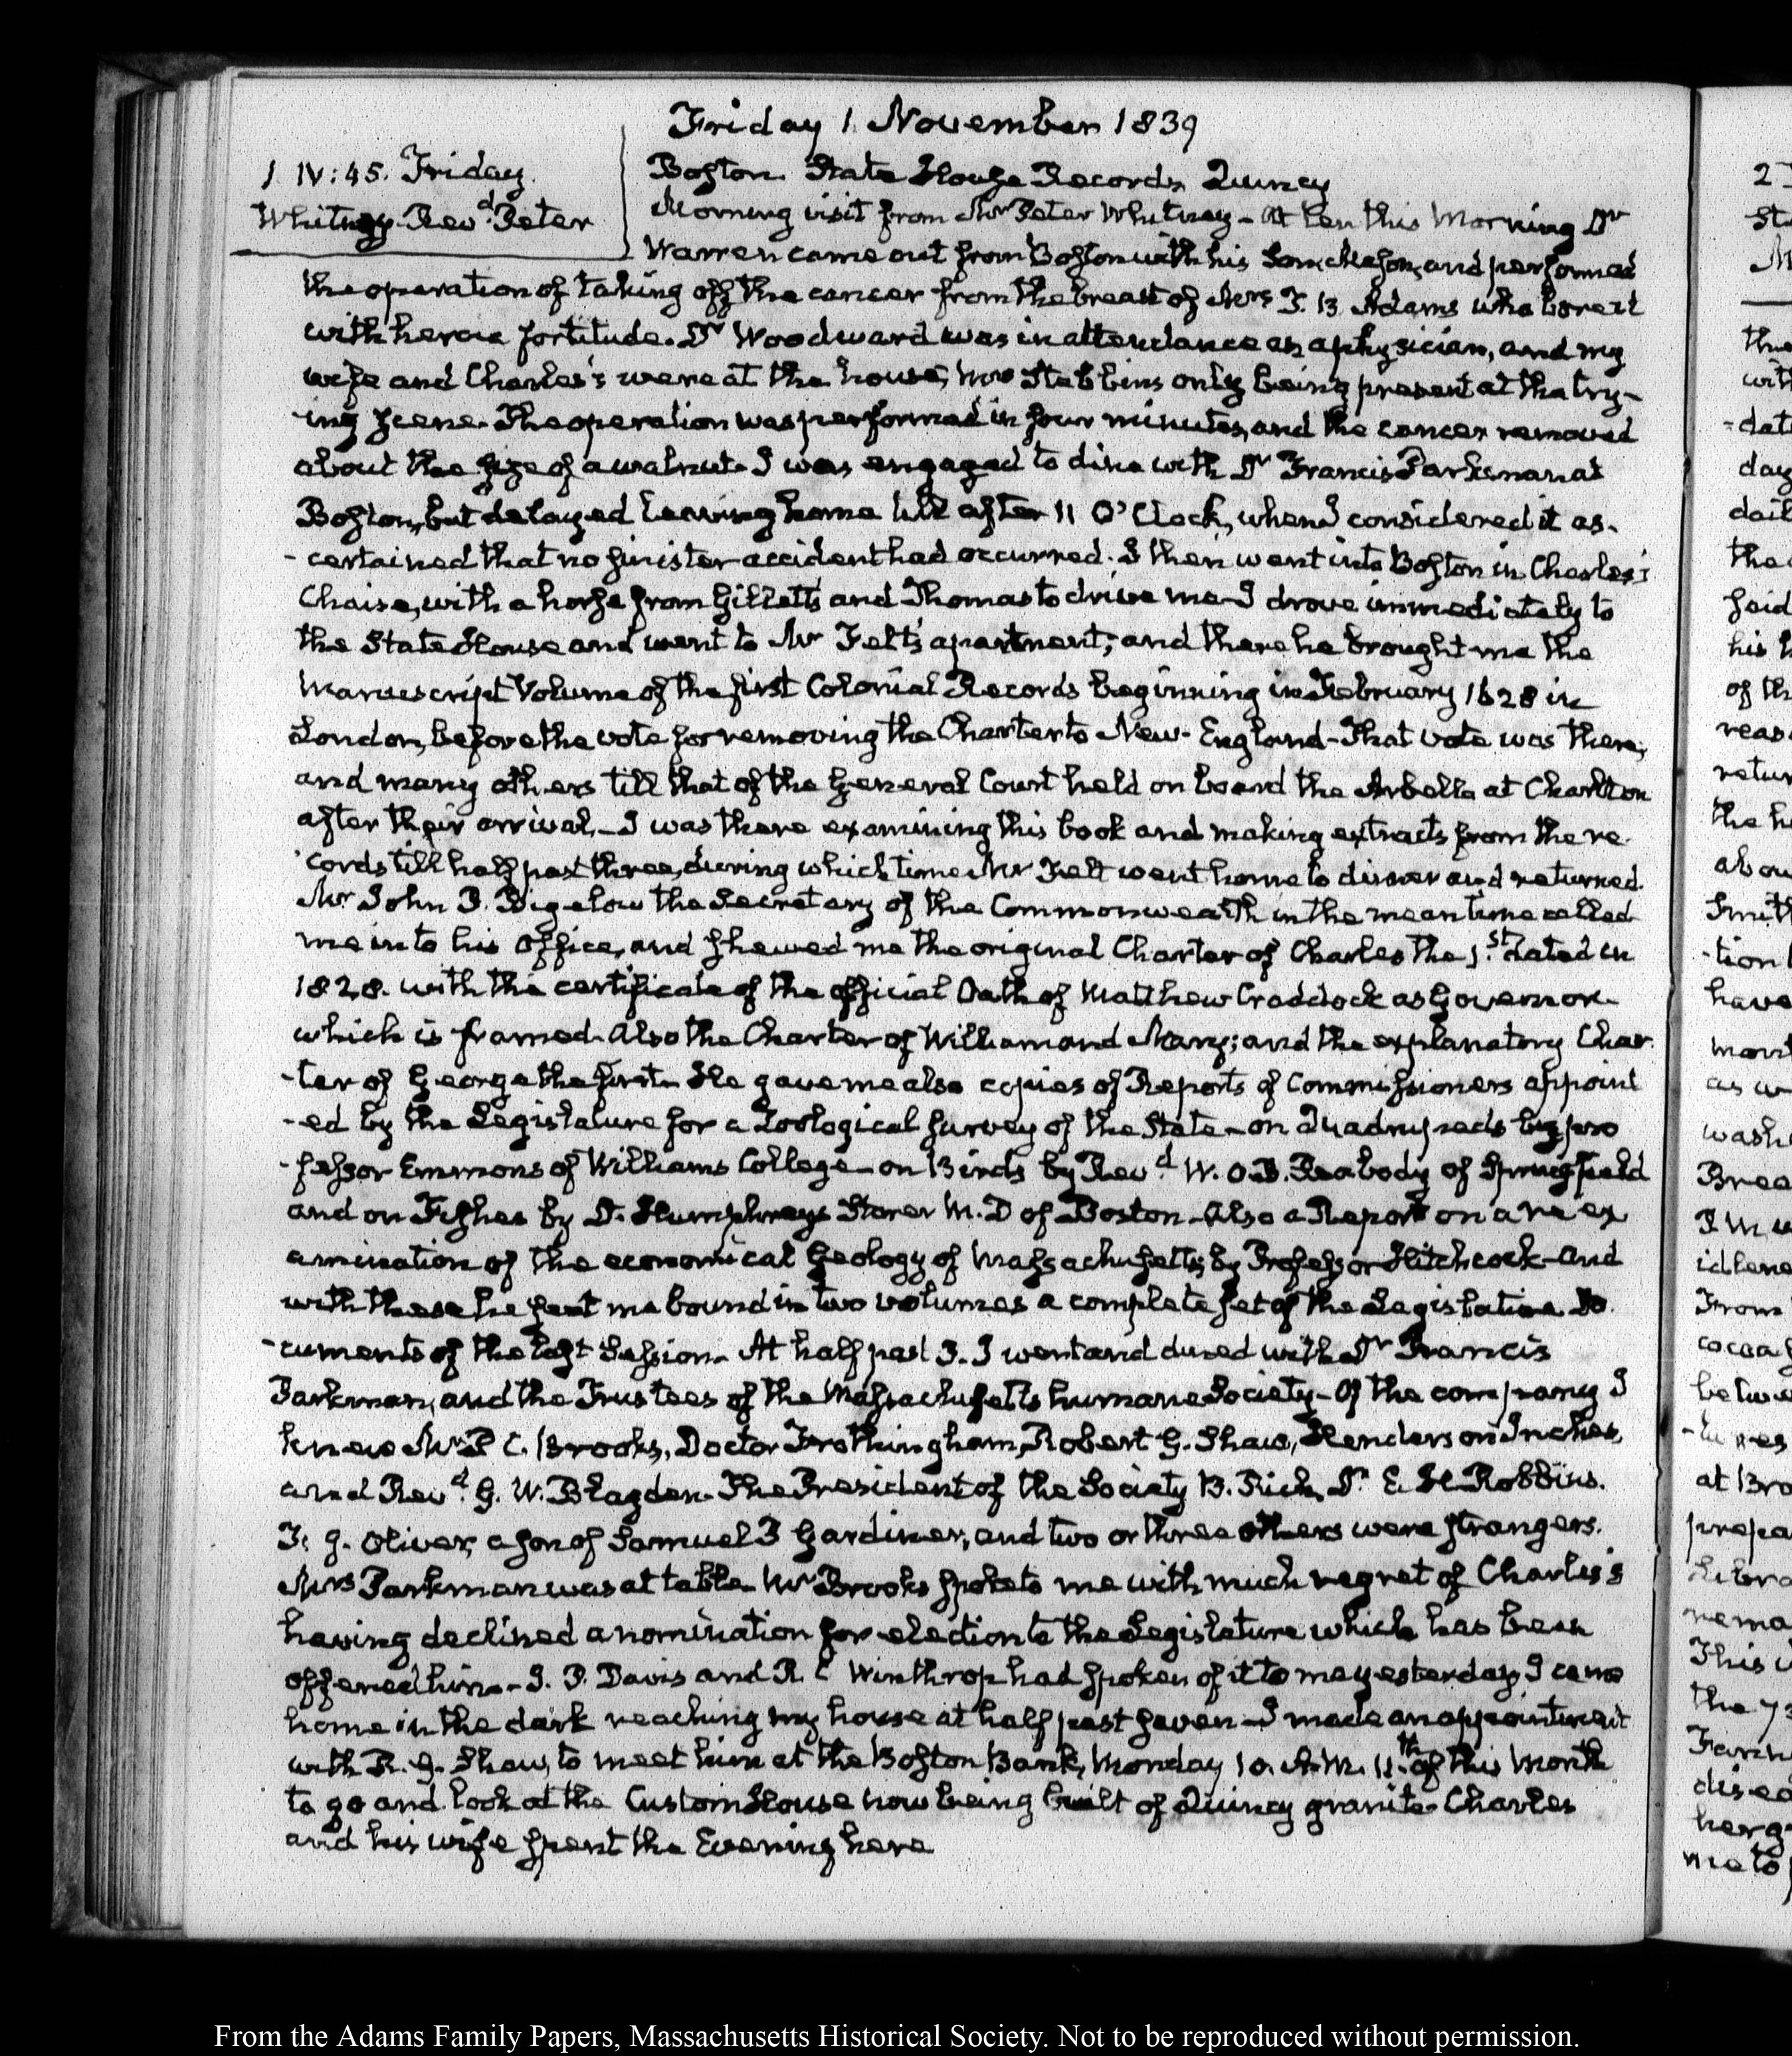 Friday 1. November 1839
1 IV:45. Friday.
Whitney Revd. Peter
Boston. State House Records. Quincy
Morning visit from Mr Peter Whitney - At ten this Morning Dr
Warren came out from Boston with his Son Mason, and performed
the operation of taking off the cancer from the breast of Mrs T. B. Adams who bore it
with heroic fortitude. Dr Woodward was in attendance as a physician, and my
wife and Charles's were at the house, Mrs Stebbins only being present at the try-
-ing scene. The operation was performed in four minutes, and the cancer removed
about the size of a walnut. I was engaged to dine with Dr Francis Parkman at
Boston, but delayed leaving home till after 11 O'Clock, when I considered it as-
-certained that no sinister accident had occurred. I then went into Boston in Charles's
Chaise, with a horse from Gillett's and Thomas to drive me - I drove immediately to
the State House and went to Mr Felt's apartment; and there he brought me the
Manuscript Volume of the first Colonial Records beginning in February 1628 in
London, before the vote for removing the Charter to New-England - That vote was there,
and many others till that of the General Court held on board the Arbella at Charlton
after their arrival. - I was there examining this book and making extracts from the re-
-cords till half past three, during which time Mr Felt went home to dinner and returned.
Mr John P. Bigelow the Secretary of the Commonwealth in the mean time called
me into his Office, and shewed me the original Charter of Charles the 1.st dated in
1828. with the certificate of the official Oath of Matthew Craddock as Governor.
which is framed. Also the Charter of William and Mary; and the explanatory Char-
-ter of George the first. He gave me also copies of Reports of Commissioners appoint
-ed by the Legislature for a Zoological survey of the State - on Quadrupeds by pro
-fessor Emmons of Williams College - on Birds by Revd W. O. B. Peabody of Springfield
and on Fishes by D. Humphreys Storer M. D of Boston - Also a Report on a re ex
amination of the economical Geology of Massachusetts, by Professor Hitchcock - and
with these he sent me bound in two volumes a complete set of the Legislative Do
-cuments of the last Session. At half past 3. I went and dined with Dr Francis
Parkman, and the Trustees of the Massachusetts humane Society - Of the company I
knew Mr P. C. Brooks, Doctor Frothingham, Robert G. Shaw, Henderson Inches,
and Revd. G. W. Blagden. The President of the Society B. Rich, Dr E. H. Robbins.
F. J. Oliver, a son of Samuel P Gardiner, and two or three others were strangers.
Mrs Parkman was at table. Mr Brooks spoke to me with much regret of Charles's
having declined a nomination for election to the Legislature which has been
offered him. - I. P. Davis and R C Winthrop had spoken of it to me yesterday. I came
home in the dark reaching my house at half past seven - I made an appointment
with R. G. Shaw, to meet him at the Boston Bank, Monday 10. A.M. 11.th of this Month
to go and look at the Custom House now being built of Quincy granite. Charles
and his wife spent the Evening here
From the Adams Family Papers, Massachusetts Historical Society. Not to be reproduced without permission.